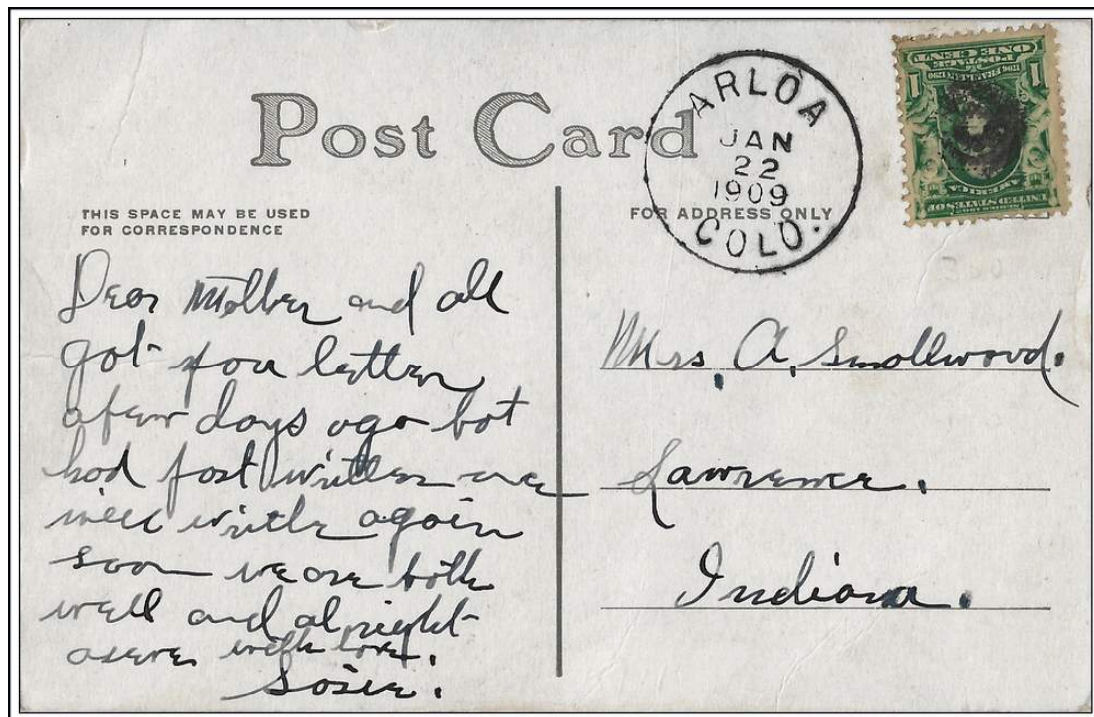 Post Card
ARLOA
JAN
22
1909
COLO.
ONE CENT
POSTAGE
1 1
UNITED STATES OF
AMERICA
THIS SPACE MAY BE USED
FOR CORRESPONDENCE
FOR ADDRESS ONLY
Dear Mother and all
got you letter
a few days ago bot
had just written one
will write again
soon we are both
well and alright
as ever with love.
Sosie.
Mrs. A. Smallwood.
Lawrence.
Indiana.